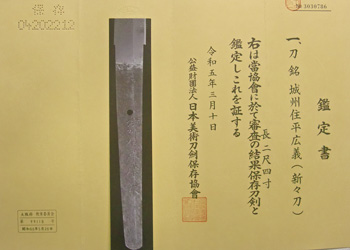 保存
04202212
No 3030786
鑑定書
一、刀 銘 城州住平広義(新々刀)
長 二尺四寸
右は當協會に於て審査の結果保存刀剣と
鑑定しこれを証する
令和五年三月十日
公益財團法人 日本美術刀剣保存協會